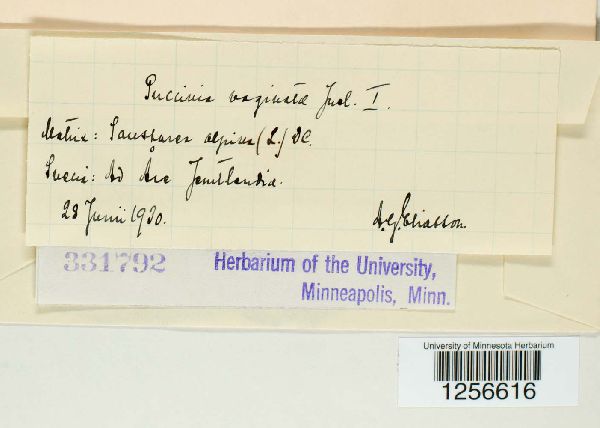 Puccinia vaginatæ Juel. I.
Matrix: Saussurea alpina (L.) DC.
Suecia: Ad Åre Jemtlandiæ.
28 Junii 1930.
A.G.Eliasson.
331792
Herbarium of the University,
Minneapolis, Minn.
University of Minnesota Herbarium
1256616